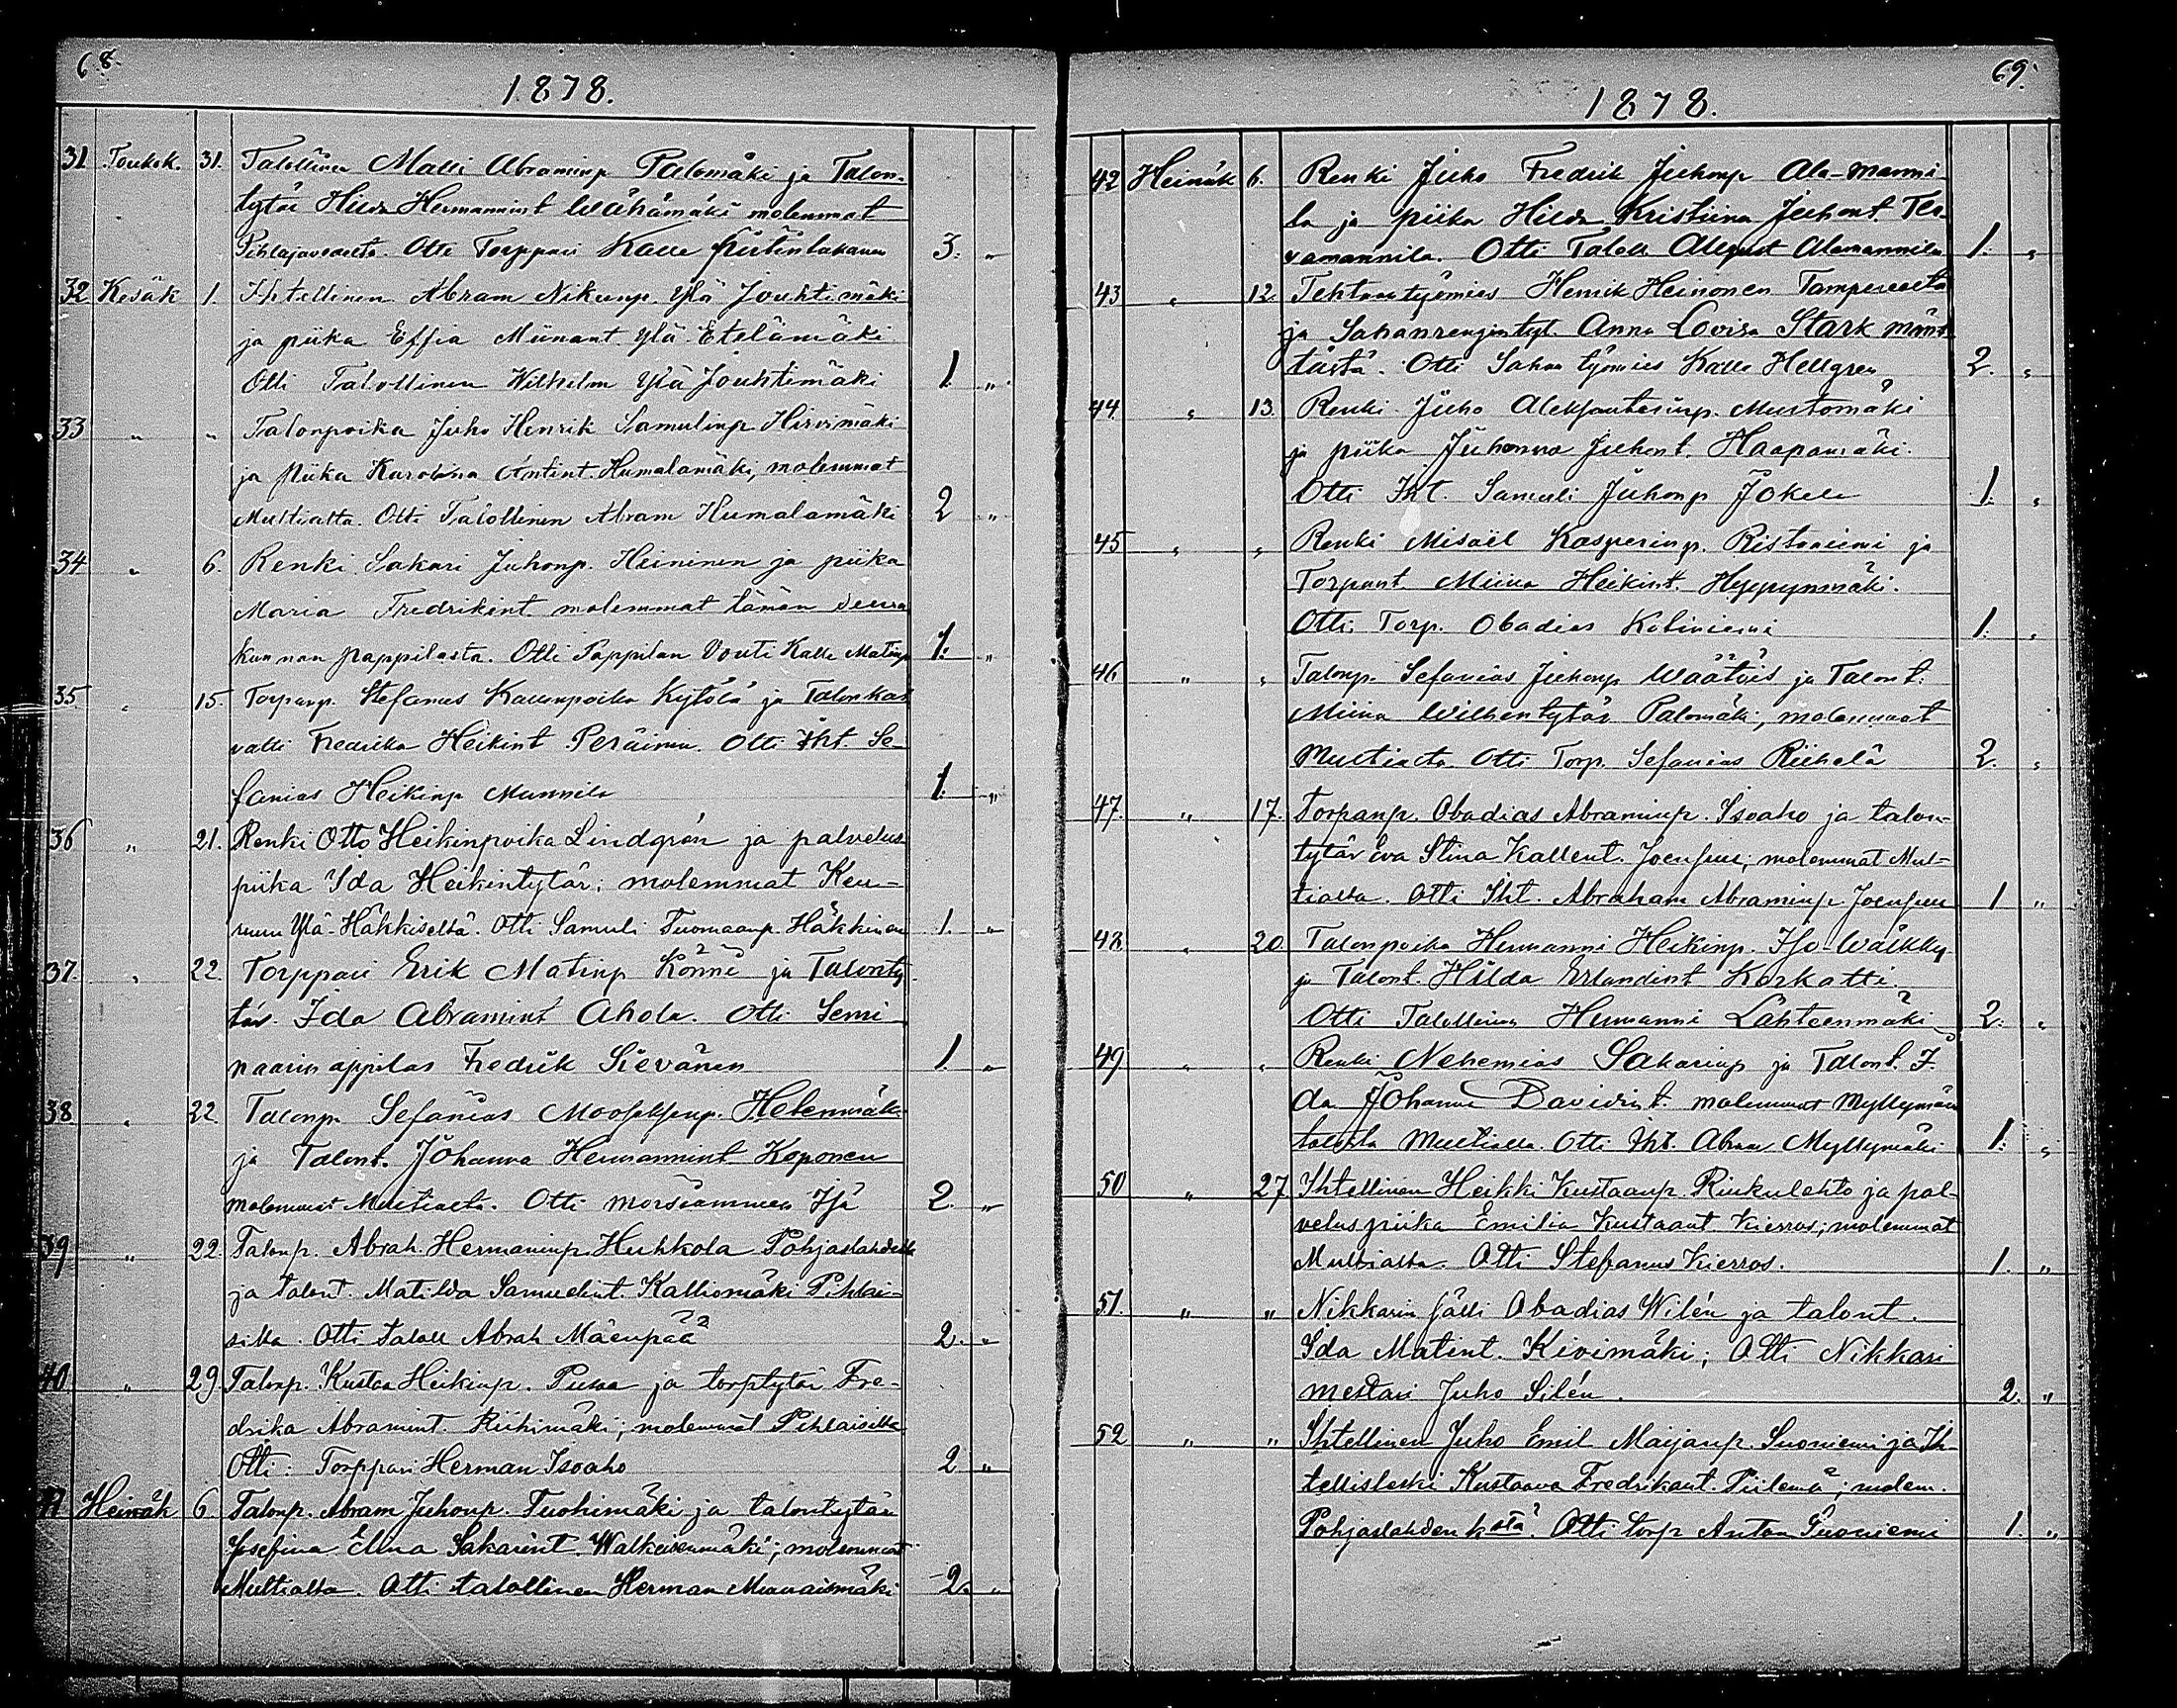 68.
1878.
31 Toukok. 31. Talollinen Matti Abraminp Palomäki ja Talon-
tytär Hilda Hermannint Wähämäki molemmat
Pihlajavedelta. Otti Torppari Kalle 3. „
32 Kesäk 1. Ihtellinen Abram Nikunp. Ylä Jouhtimäki
ja piika Effia Miinant Ylä Etelämäki
Otti Talollinen Wilhelm Ylä Jouhtimäki 1. „
33 „ „ Talonpoika Juho Henrik Samulinp Hirvimäki
ja piika Karolina Antint. Humalamäki, molemmat
Multialta. Otti Talollinen Abram Humalamäki 2 „
34 „ 6. Renki Sakari Juhonp. Heininen ja piika
Maria Fredrikint molemmat tämän Seura
kunnan pappilasta. Otti Pappilan Vouti Kalle Matinp 1. „
35 „ 15. Torpanp. Stefanus Kallenpoika Kytölä ja Talonkas
vatti Fredrika Heikint Peräinen. Otti Iht. Se-
fanias Heikinp Mannila 1. „
36 „ 21. Renki Otto Heikinpoika Lindgrén ja palvelus
piika Ida Heikintytär; molemmat Keu-
ruun Ylä-Häkkiseltä. Otti Samuli Tuomaanp. Häkkinen 1. „
37. „ 22. Torppari Erik Matinp Könni ja Talonty
tär. Ida Abramint Ahola. Otti Semi
naarin oppilas Fredrik Sievänen 1. „
38. „ 22. Talonp. Sefanias Mooseksenp. Helenmäki
ja Talont. Johanna Hermannint Koponen
molemmat Multialta. Otti morsiammen Isä 2. „
39 „ 22. Talonp. Abrah. Hermaninp Huhkola Pohjaslahdelta
ja talont. Matilda Samuelint. Kalliomäki Pihlai-
silta. Otti taloll Abrah Mäenpää 2. „
40 „ 29 Talonp. Kustaa Heikinp. Pusaa ja torptytär Fre-
drika Abramint. Riihimäki; molemmat Pihlaisilta
Otti. Torppari Herman Isoaho 2 „
41 Heinäk 6 Talonp. Abram Juhonp. Tuohimäki ja talontytär
Josefina Elina Sakarint. Walkeisenmäki; molemmat
Multialta. Otti talollinen Herman 2. „
69.
1878.
42 Heinäk 6. Renki Juho Fredrik Juhonp Ala-Manni-
la ja piika Hilda Kristiina Juhont Ter
vamannila. Otti Taloll. August Alamannila 1. „
43 „ 12. Tehtaan työmies Henrik Heinonen Tampereelta
ja Sahanrengintyt. Anna Lovisa Stark mänt
tästä. Otti Sahan työmies Kalle Hellgren 2. „
44. „ 13. Renki Juho Aleksanterinp. Mustomäki
ja piika Juhanna Juhont. Haapamäki.
Otti Iht. Samuli Juhonp Jokela 1. „
45 „ „ Renki Misael Kasperinp. Ristaniemi ja
Torpant. Miina Heikint. Heppynmäki.
Otti Torp. Obadias Kotiniemi 1. „
46 „ „ Talonp. Sefanias Juhonp Wäätäis ja Talont.
Miina Wilhentytär Palomäki, molemmat
Multialta Otti Torp. Sefanias Riihelä 2. „
47. „ 17. Torpanp. Obadias Abraminp. Isoaho ja talon-
tytär Eva Stina Kallent. Joensuu; molemmat Mul-
tialta. Otti Iht. Abraham Abraminp. Joensuu 1 „
48 „ 20 Talonpoika Hermanni Heikinp. Iso-Wälkky
ja Talont. Hilda Erlandint Korkatti.
Otti Talollinen Hermanni Lahteenmäki 2. „
49 „ „ Renki Nehemias Sakarinp ja Talont. I-
da Johanna Davidint. molemmat Myllymäen
talosta Multialla. Otti Iht. Abram Myllymäki 1. „
50 „ 27 Ihtellinen Heikki Kustaanp. Riukulehto ja pal-
veluspiika Emilia Kustaant. Kierros; molemmat
Multialta. Otti Stefanus Kierros. 1. „
51. „ „ Nikkarin sälli Obadias Wilén ja talont.
Ida Matint. Kivimäki; Otti Nikkari
mestari Juho Silén. 2. „
52 „ „ Ihtellinen Juho Emil Maijanp. Suoniemi ja Ih
tellisleski Kustaava Fredrikant. Piilemä; molem.
Pohjaslahden kstä. Otti torp Anton Suoniemi 1. „